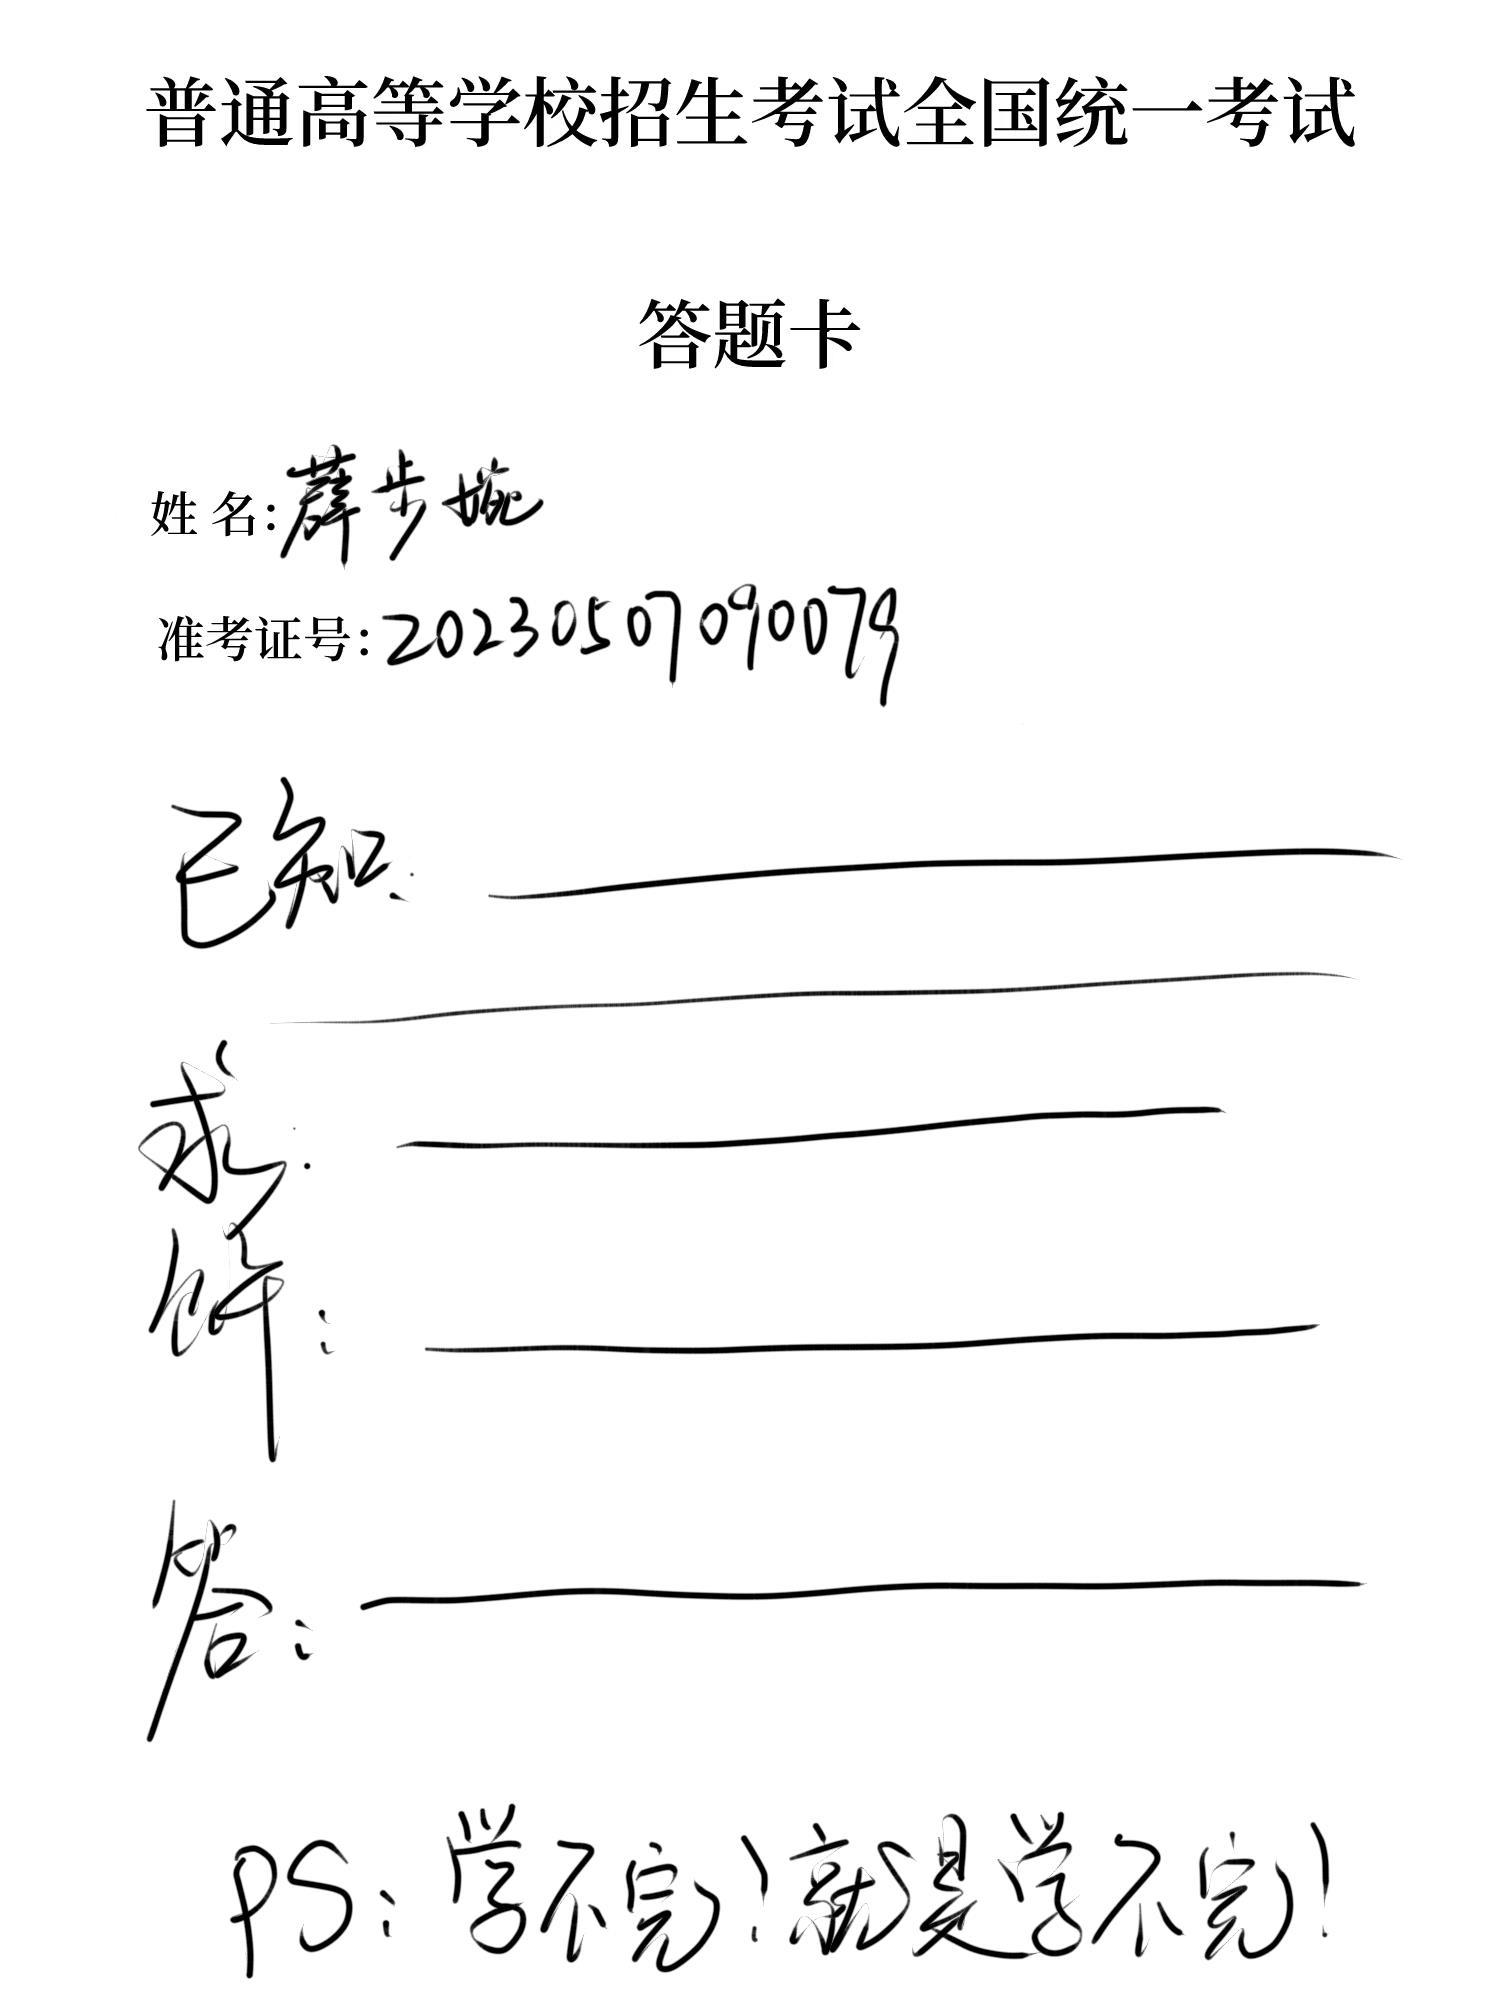 普通高等学校招生考试全国统一考试
答题卡
姓 名:薛步婉
准考证号:20230507090079
已知:
求:
解:
答:
PS:学不完!就是学不完!